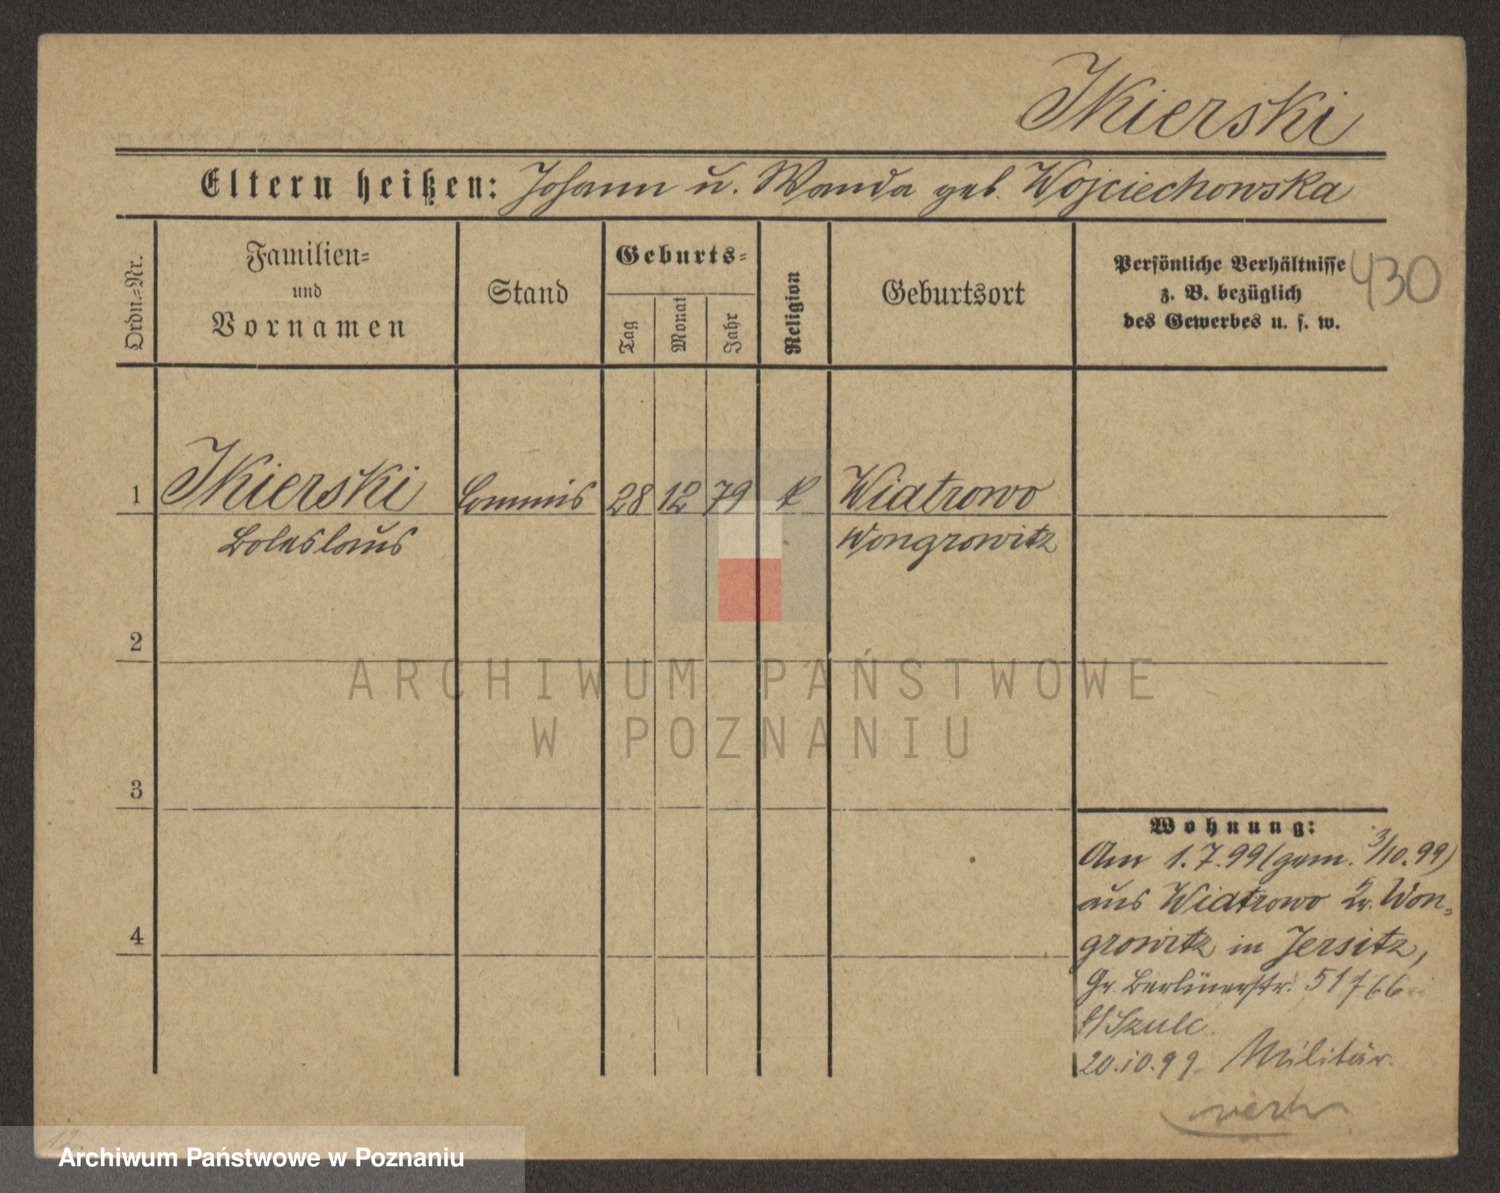 Ikierski
Eltern heißen: Johann u. Wanda geb. Wojciechowska
Ordn.-Nr.
Familien-
und
Vornamen
Stand
Geburts-
Tag
Monat
Jahr
Religion
Geburtsort
Persönliche Verhältnisse
z. B. bezüglich
des Gewerbes u. s. w.
430
1 Ikierski Commis 28 12 79 k Wiatrowo
Boleslaus Wongrowitz
2
3
4
Wohnung:
Am 1.7.99 (gem. 3/10.99)
aus Wiatrowo Kr. Won-
growitz in Jersitz,
Gr. Berlinerstr. 51/66
b/Szulc.
20.10.99 Militär.
verh
ARCHIWUM PAŃSTWOWE
W POZNANIU
Archiwum Państwowe w Poznaniu